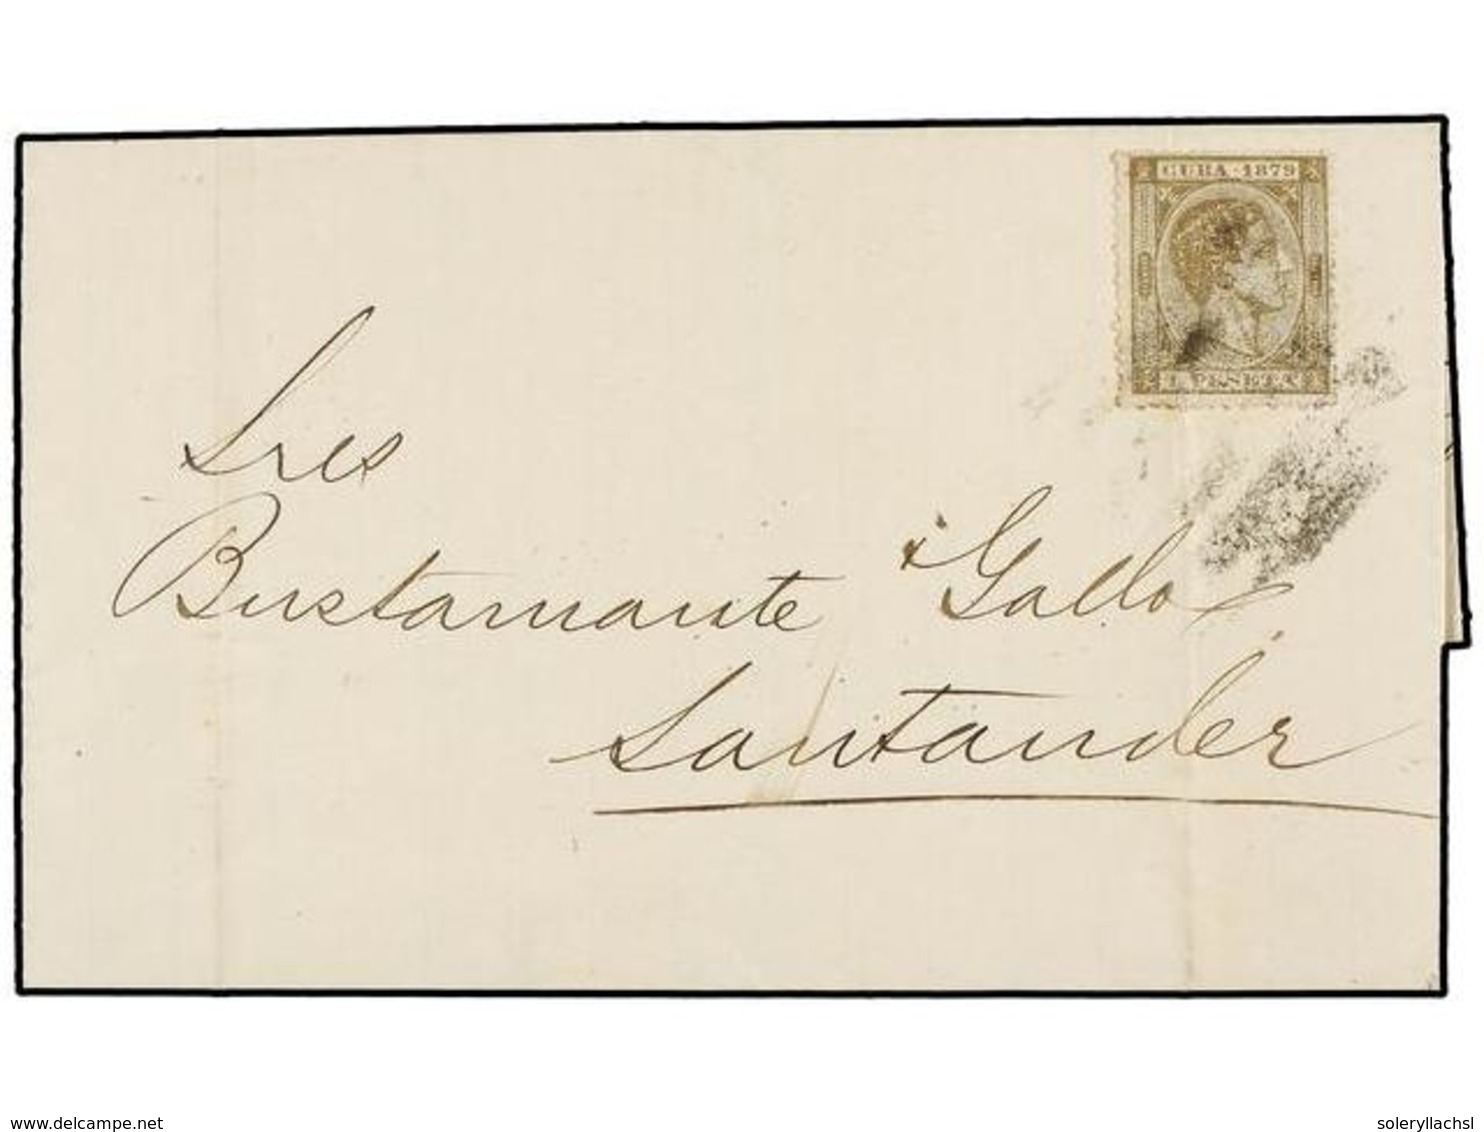 CUBA · 1879
1 PESETA
Sres
Bustamante y Gallo
Santander
delcampe.net
soleryllachsl